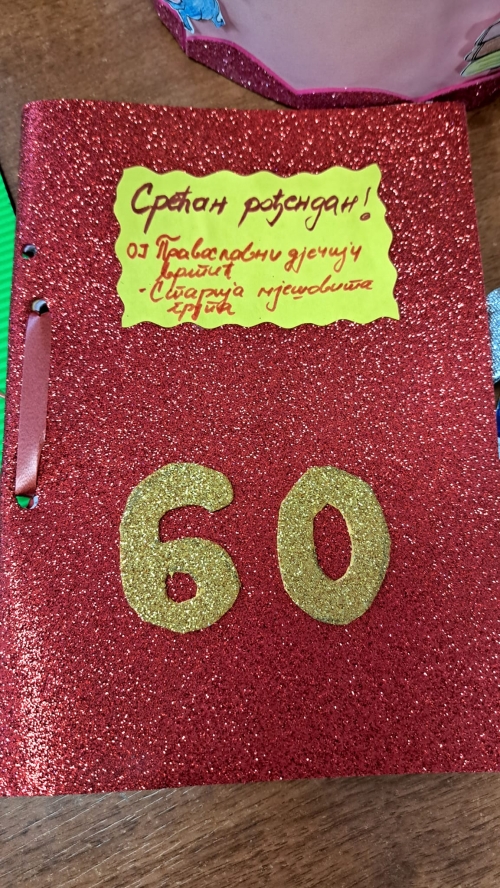 Срећан рођендан!
ОЈ Православни дјечији
вртић
- Старија мјешовита
група
60